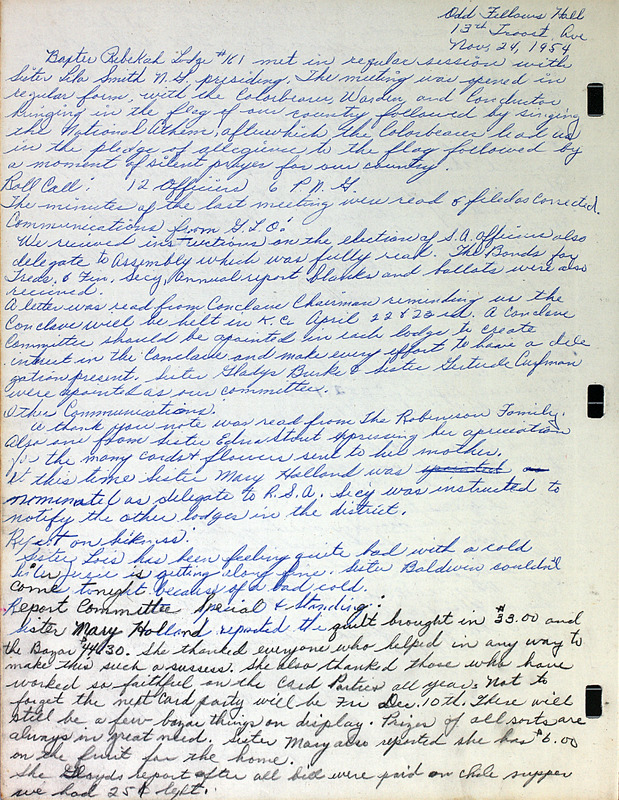 Odd Fellows Hall
13th Troost Ave
Nov, 24, 1954
Baxter Rebekah Lodge #161 met in regular session with
Sister Lela Smith N.G. presiding. The meeting was opened in
regular form, with the Colorbearer, Warden, and Conductor
bringing in the flag of our country followed by singing
the National Athem, afterwhich the Colorbearer lead us
in the pledge of allegience to the flag followed by
a moment of silent prayer for our country.
Roll Call: 12 Officers 6 P.N.G.
The minutes of the last meeting were read & filed as corrected.
Communications from G.L.O:
We recieved instructions on the election of S.A. Officers also
delegate to Assembly which was fully read. The Bonds for
Treas. & Fin. Secy, Annual report blanks and ballots were also
recieved.
A letter was read from Conclave Chairman reminding us the
Conclave will be held in K.C. April 22 & 23rd. A Conclave
Committee should be apointed in each lodge to create
intrest in the Conclave and make every effort to have a dele
gation present. Sister Gladys Burke & Sister Gertrude
were apointed as our committee.
Other Communications.
A thank you note was read from The Robinson Family.
Also one from Sister Edna Stout xpressing her apreciation
for the many cards & flowers sent to her mother.
At this time Sister Mary Holland was
nominated as delegate to R.S.A. Secy was instructed to
notify the other lodges in the district.
Report on Sickness:
Sister Lois has been feeling quite bad with a cold
Sister is getting along fine. Sister Baldwin couldn't
come tonight because of a bad cold.
Report Committee Special & Standing:
Sister Mary Holland reported the quilt brought in $33.00 and
the Bazar $44.30. She thanked everyone who helped in any way to
make this such a sussess. She also thanked those who have
worked so faithful on the Card Parties all year. Not to
forget the next Card party will be Fri Dec. 10th. There will
still be a few bazar things on display. Prizes of all sorts are
always in great need. Sister Mary also reported she has $6.00
on the fruit for the home.
She Gladys report after all bills were paid on chile supper
we had 25¢ left.